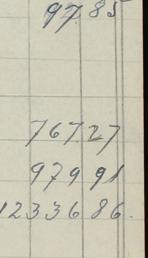 97.85
767.27
979 91
12336 86.